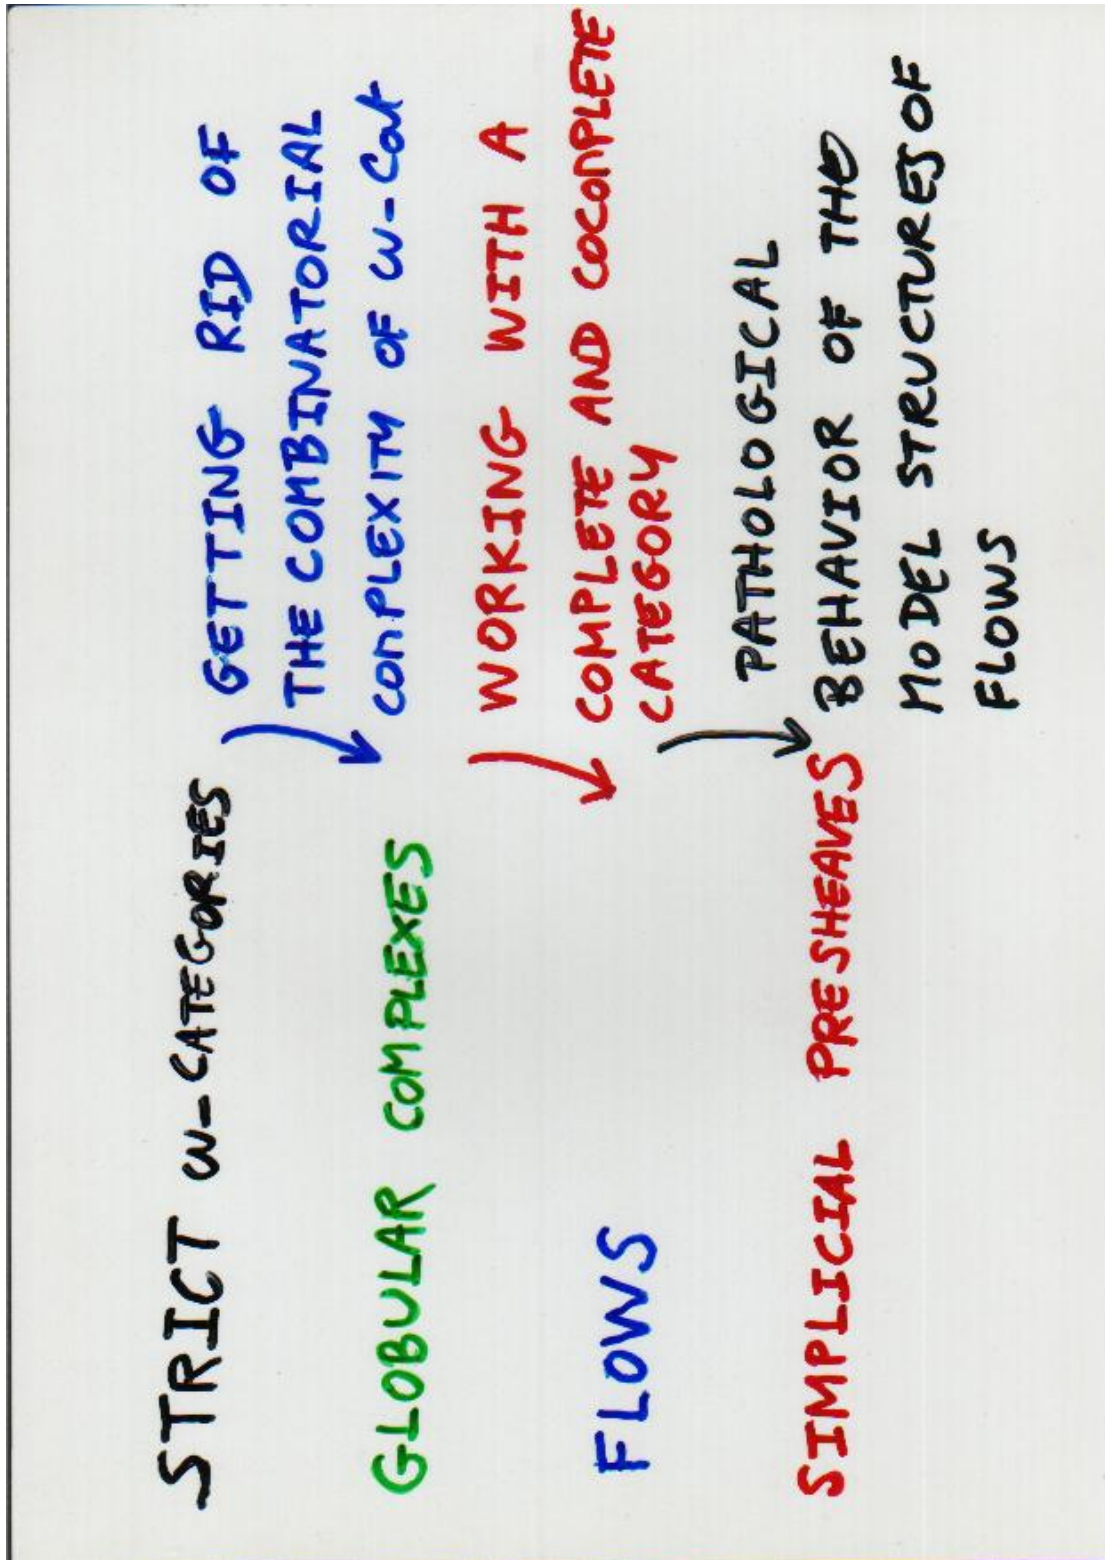 STRICT ω-CATEGORIES
GETTING RID OF
THE COMBINATORIAL
COMPLEXITY OF ω-Cat
GLOBULAR COMPLEXES
WORKING WITH A
COMPLETE AND COCOMPLETE
CATEGORY
FLOWS
PATHOLOGICAL
BEHAVIOR OF THE
MODEL STRUCTURES OF
FLOWS
SIMPLICIAL PRESHEAVES